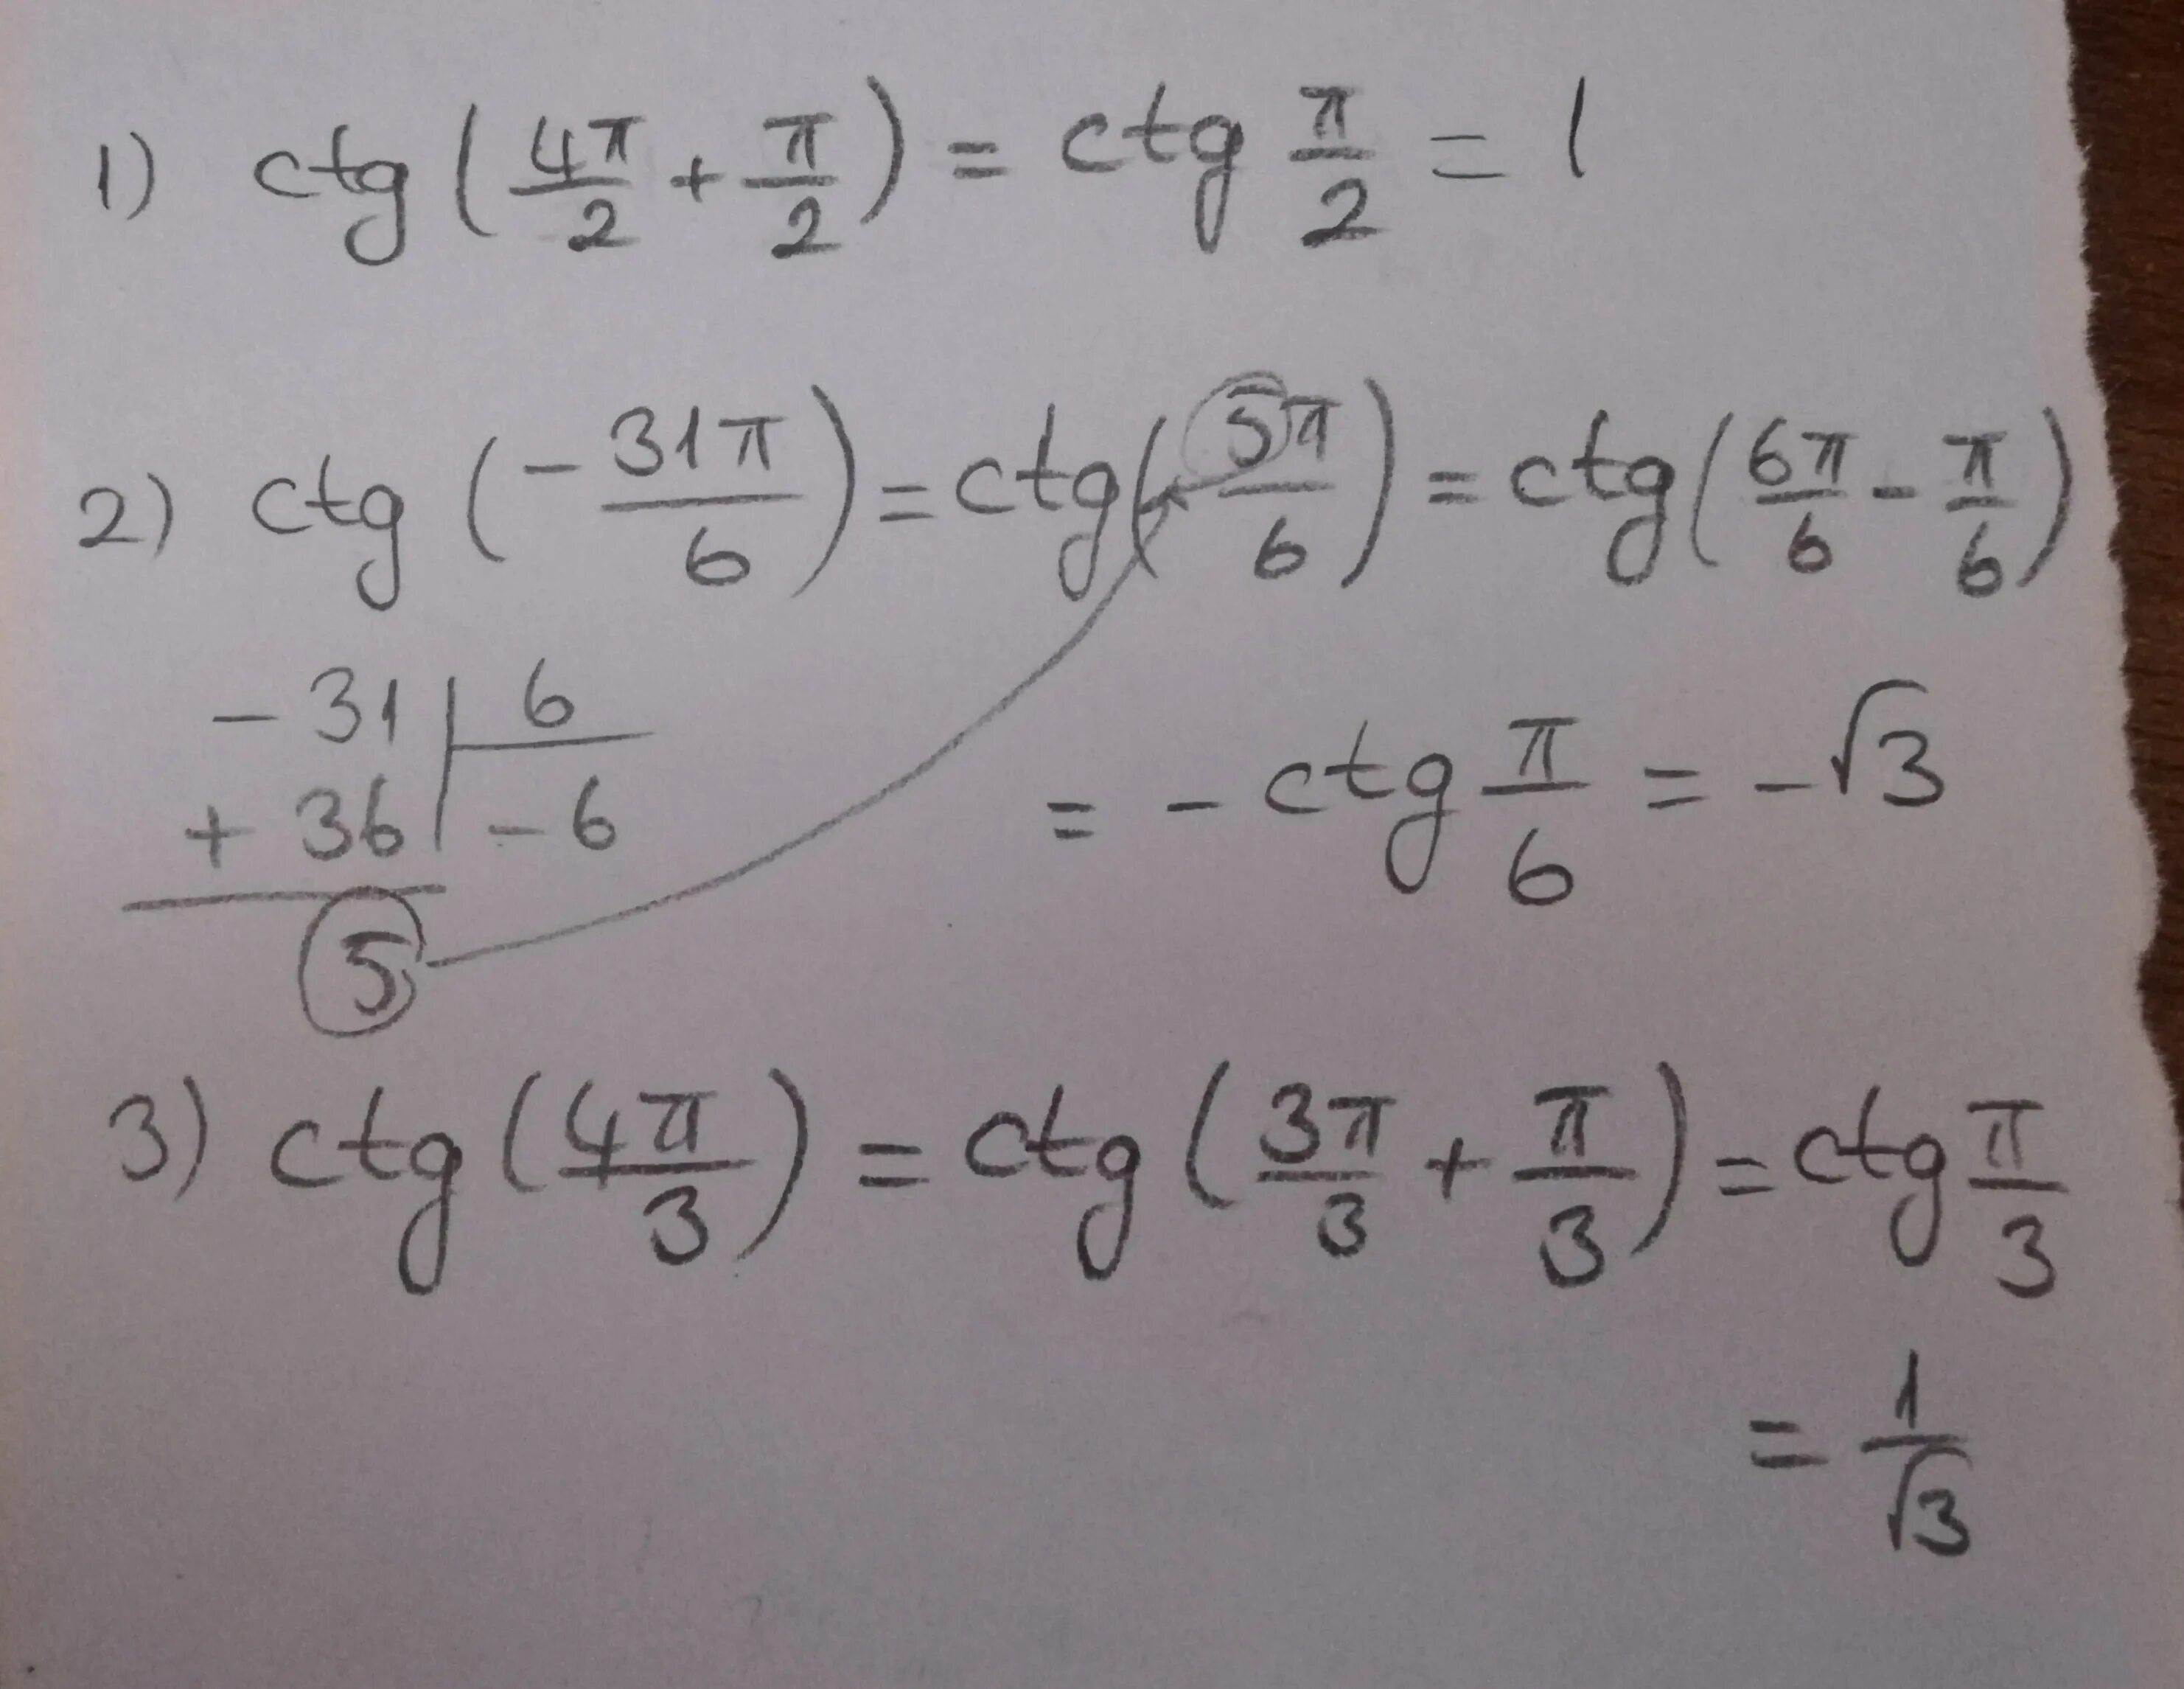 1) ctg (4π/2 + π/2) = ctg π/2 = 1
2) ctg (-31π/6) = ctg(5π/6) = ctg(6π/6 - π/6)
= - ctg π/6 = -√3
- 31 | 6
+ 36 | - 6
5
3) ctg (4π/3) = ctg (3π/3 + π/3) = ctg π/3
= 1/√3